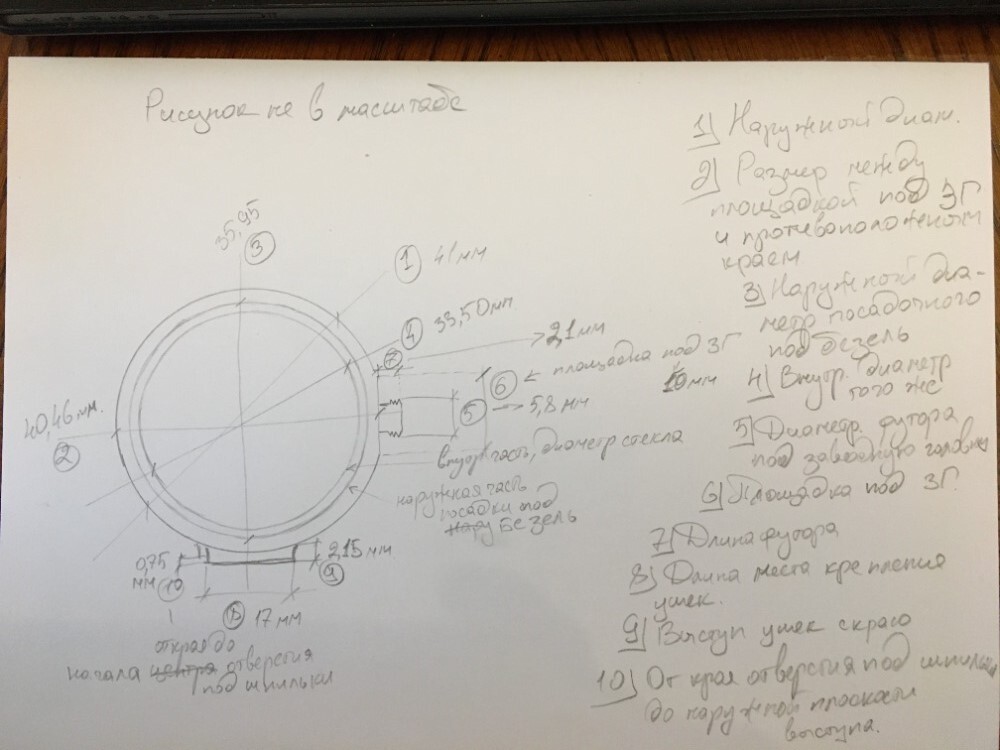 Рисунок не в масштабе
35,95
3
1
41 мм
4
33,50 мм.
7
2,1 мм
6
площадка под ЗГ
10 мм
5
5,8 мм
40,46 мм.
2
внутр часть, диаметр стекла
наружная часть
посадки под
Безель
0,75
мм
10
2,15 мм
9
8
17 мм
от края до
начала центра отверстия
под шпильки
1) Наружный диам.
2) Размер между
площадкой под ЗГ
и противоположеным
краем
3) Наружный диа-
метр посадочного
под безель
4) Внутр. диаметр
того же
5) Диаметр футора
под заводную головку
6) Площадка под ЗГ.
7) Длина футора
8) Длина места крепления
ушек.
9) Выступ ушек с краю
10) От края отверстия под шпильки
до наружной плоскости
выступа.